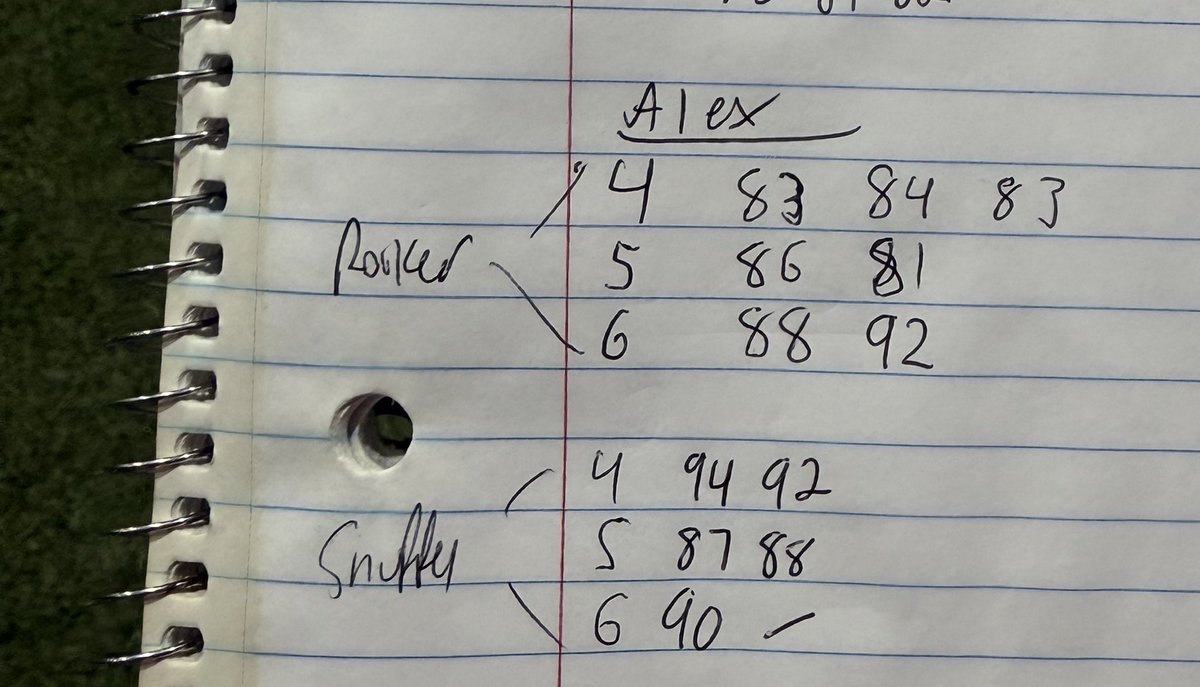 Alex
4 83 84 83
Rocker 5 86 81
6 88 92
4 94 92
5 87 88
6 90 –